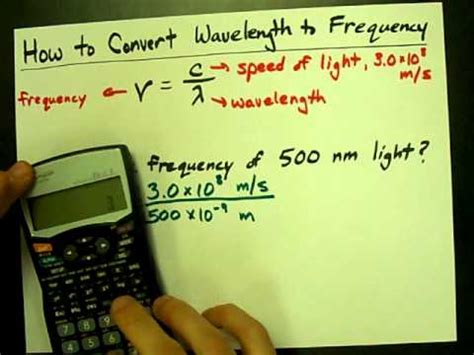 How to Convert Wavelength to Frequency
frequency ← ν = c/λ → speed of light, 3.0×10⁸ m/s
→ wavelength
frequency of 500 nm light?
3.0×10⁸ m/s
500×10⁻⁹ m